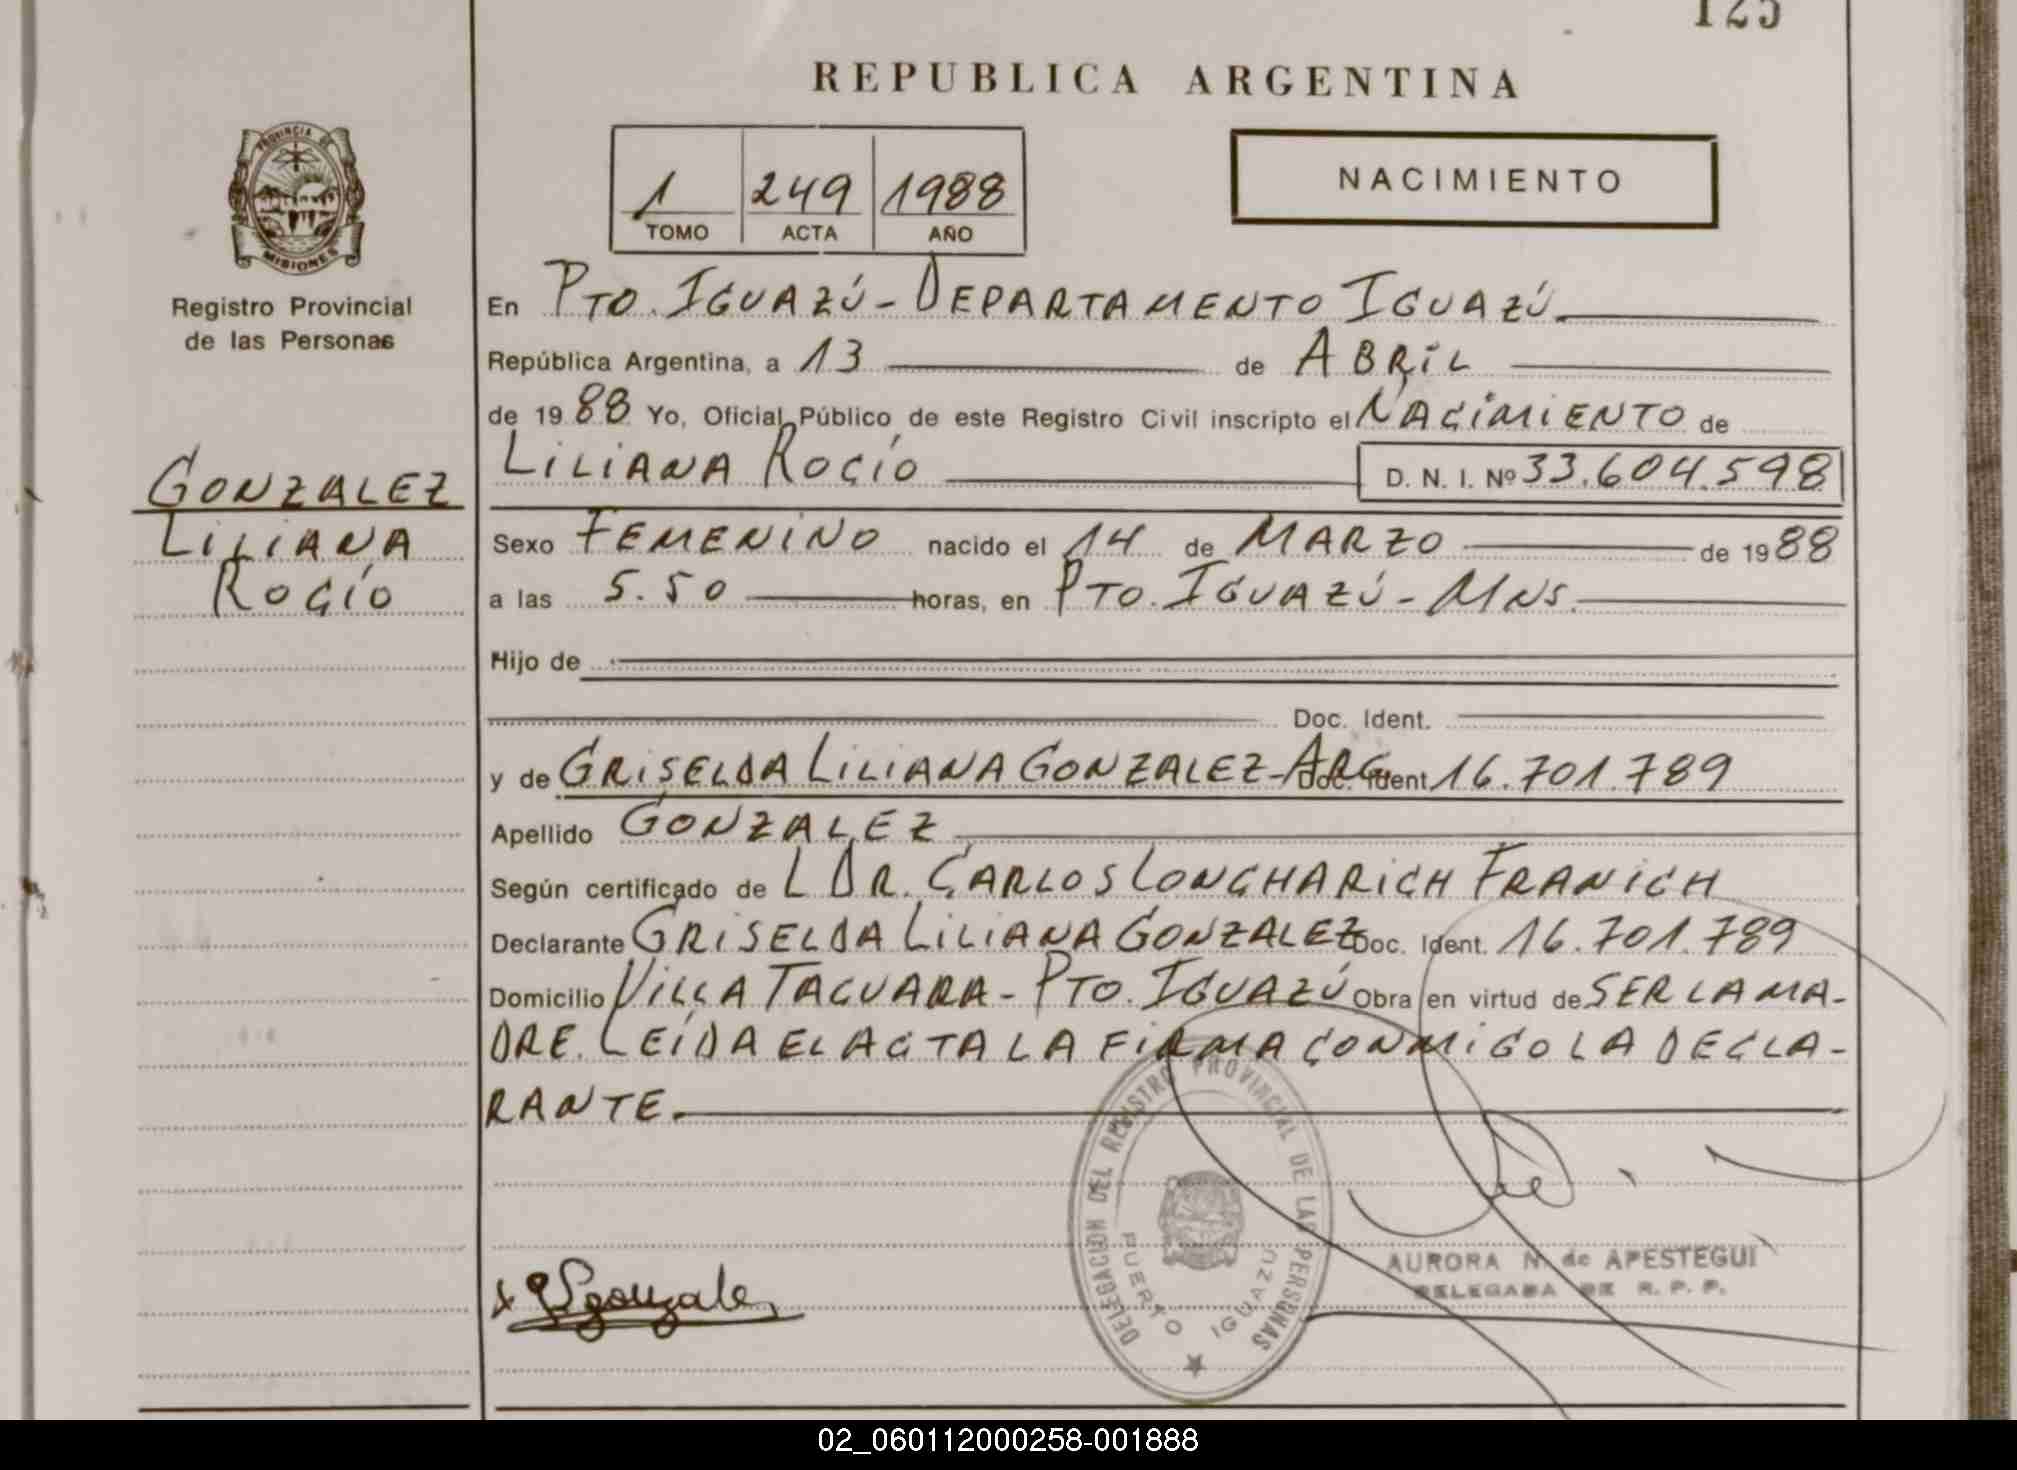 125
REPUBLICA ARGENTINA
PROVINCIA DE
MISIONES
Registro Provincial
de las Personas
1 249 1988
TOMO ACTA AÑO
NACIMIENTO
En PTO. IGUAZÚ - DEPARTAMENTO IGUAZÚ
República Argentina, a 13 de ABRIL
de 1988 Yo, Oficial Público de este Registro Civil inscripto el NACIMIENTO de
LILIANA ROCÍO D. N. I. Nº 33.604.598
GONZALEZ
LILIANA
ROCÍO
Sexo FEMENINO nacido el 14 de MARZO de 1988
a las 5.50 horas, en PTO. IGUAZÚ - MNS.
Hijo de
Doc. Ident.
y de GRISELDA LILIANA GONZALEZ - ARG. Doc. Ident 16.701.789
Apellido GONZALEZ
Según certificado de L DR. CARLOS LONCHARICH FRANICH
Declarante GRISELDA LILIANA GONZALEZ Doc. Ident. 16.701.789
Domicilio VILLA TACUARA - PTO. IGUAZÚ Obra en virtud de SER LA MA-
DRE. LEÍDA EL ACTA LA FIRMA CONMIGO LA DECLA-
RANTE.
DELEGACION DEL REGISTRO PROVINCIAL DE LAS PERSONAS
PUERTO IGUAZU
AURORA N. de APESTEGUI
DELEGADA DE R. P. P.
02_060112000258-001888